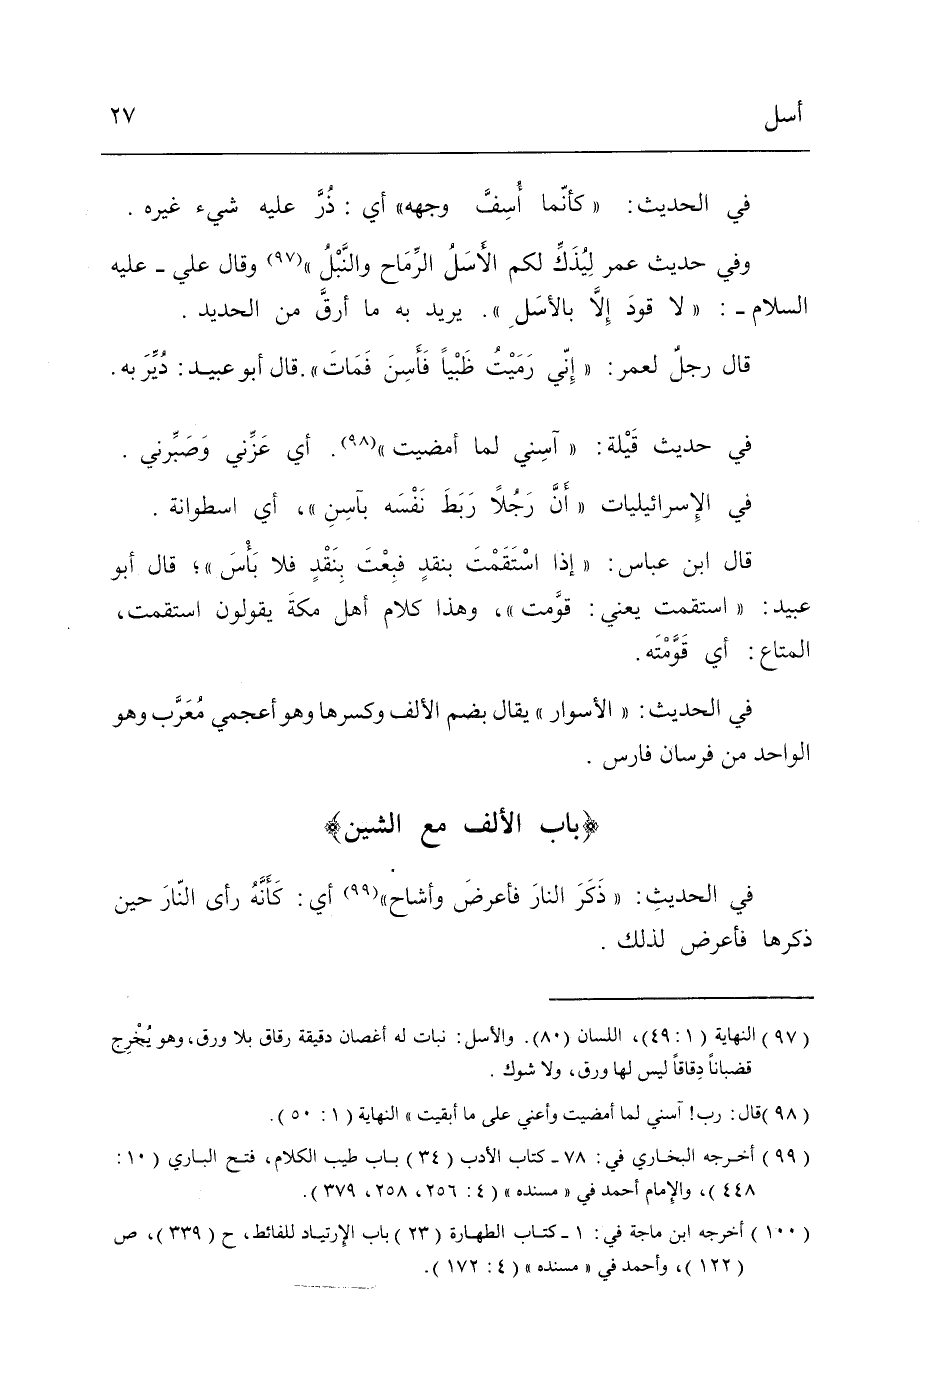 أسل ٢٧
في الحديث: « كأنّما أُسِفَّ وجهه» أي : ذُرَّ عليه شيء غيره .
وفي حديث عمر لِيُذَكِّ لكم الأَسَلُ الرِّمَاح والنَّبْلُ »(٩٧) وقال علي ـ عليه
السلام ـ : « لا قودَ إِلَّا بالأسَلِ ». يريد به ما أرقَّ من الحديد .
قال رجلٌ لعمر: « إِنّي رَمَيْتُ ظَبْياً فَأَسِنَ فَمَاتَ».قال أبو عبيد: دُيِّرَ به.
في حديث قَيْلة: « آسِني لما أمضيت »(٩٨). أي عَزِّني وَصَبِّرني .
في الإسرائيليات « أَنَّ رَجُلاً رَبَطَ نَفْسَه بآسِنٍ »، أي اسطوانة .
قال ابن عباس: « إذا اسْتَقَمْتَ بنقدٍ فبِعْتَ بِنَقْدٍ فلا بَأْسَ »؛ قال أبو
عبيد: « استقمت يعني: قوَّمت »، وهذا كلام أهل مكةَ يقولون استقمت،
المتاع: أي قَوَّمْتَه.
في الحديث: « الأسوار » يقال بضم الألف وكسرها وهو أعجمي مُعَرَّب وهو
الواحد من فرسان فارس .
﴿باب الألف مع الشين﴾
في الحديثِ: « ذَكَرَ النارَ فأعرضَ وأشاح»(٩٩) أي: كَأَنَّهُ رأى النّارَ حين
ذكرها فأعرض لذلك .
(٩٧) النهاية (١: ٤٩)، اللسان (٨٠). والأسل: نبات له أغصان دقيقة رقاق بلا ورق، وهو يُخْرِج
قضباناً دِقاقاً ليس لها ورق، ولا شوك .
(٩٨)قال: رب! آسني لما أمضيت وأعني على ما أبقيت » النهاية (١ : ٥٠).
(٩٩) أخرجه البخاري في: ٧٨ـ كتاب الأدب (٣٤) باب طيب الكلام، فتح الباري (١٠:
٤٤٨)، والإمام أحمد في « مسنده » (٤: ٢٥٦، ٢٥٨، ٣٧٩).
(١٠٠) أخرجه ابن ماجة في: ١ـ كتاب الطهارة (٢٣) باب الإرتياد للفائط، ح (٣٣٩)، ص
(١٢٢)، وأحمد في « مسنده » (٤: ١٧٢).